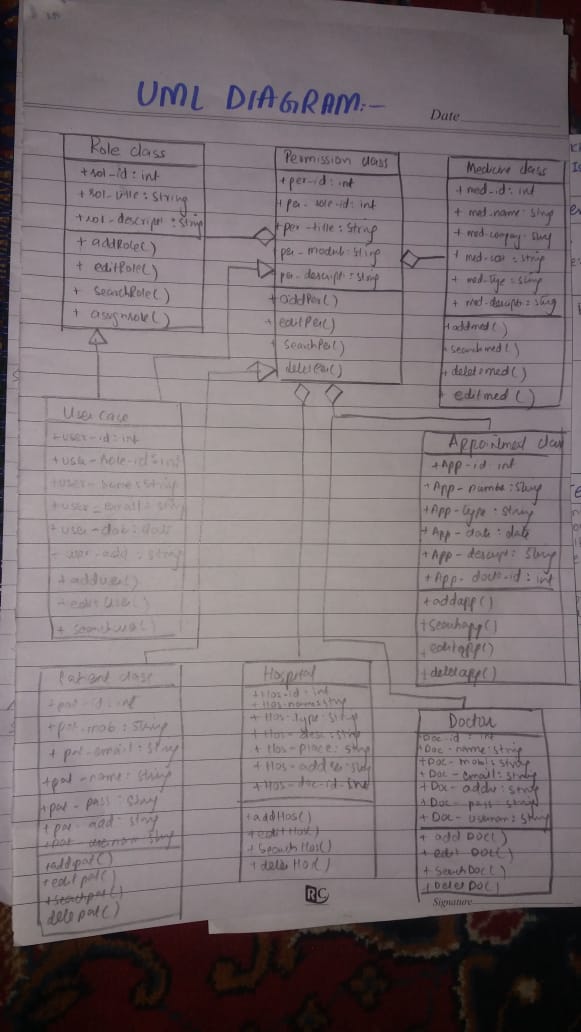 UML DIAGRAM:-
Date
Role class
+rol-id: int
+rol-title: String
+rol-descript: String
+ addRole()
+ editRole()
+ searchRole()
+ assignrole()
Permission class
+per-id: int
+per-role-id: int
+per-title: String
per-module: String
per-descript: String
+addPer()
+ editPer()
+ searchPer()
deletPer()
Medicine class
+ med-id: int
+ med-name: String
+ med-company: String
+ med-cost: String
+ med-type: String
+ med-descript: String
+addmed()
+searchmed()
+ deletemed()
+ editmed()
User case
+user-id: int
+user-role-id: int
+user-name: String
+user-email: String
+user-dob: date
user-add: String
+ adduser()
+ edit User()
+ searchuser()
Appointment class
+App-id: int
+App-number: String
+App-type: String
+App-date: date
+App-descript: String
+App-doct-id: int
+addapp()
+searchapp()
+editapp()
+deletapp()
Patient class
+pat-id: int
+pat-mob: String
+ pat-email: String
+pat-name: String
+pat-pass: String
+pat-add: String
+pat-usernam: String
+addpat()
+edit pat()
+searchpat()
delepat()
Hospital
+Hos-id: int
+Hos-name: String
+ Hos-type: String
+ Hos-desc: String
+ Hos-place: String
+ Hos-doc-id: int
+addHos()
+editHos()
+ SearchHos()
+ deletHos()
Doctor
+Doc-id: int
+Doc-name: String
+Doc-mobil: String
+Doc-email: String
+ Doc-addre: String
+ Doc-pass: String
+ Doc-usernam: String
+ add Doc()
+ edit Doc()
+ SearchDoc()
+ DeletDoc()
RC
Signature